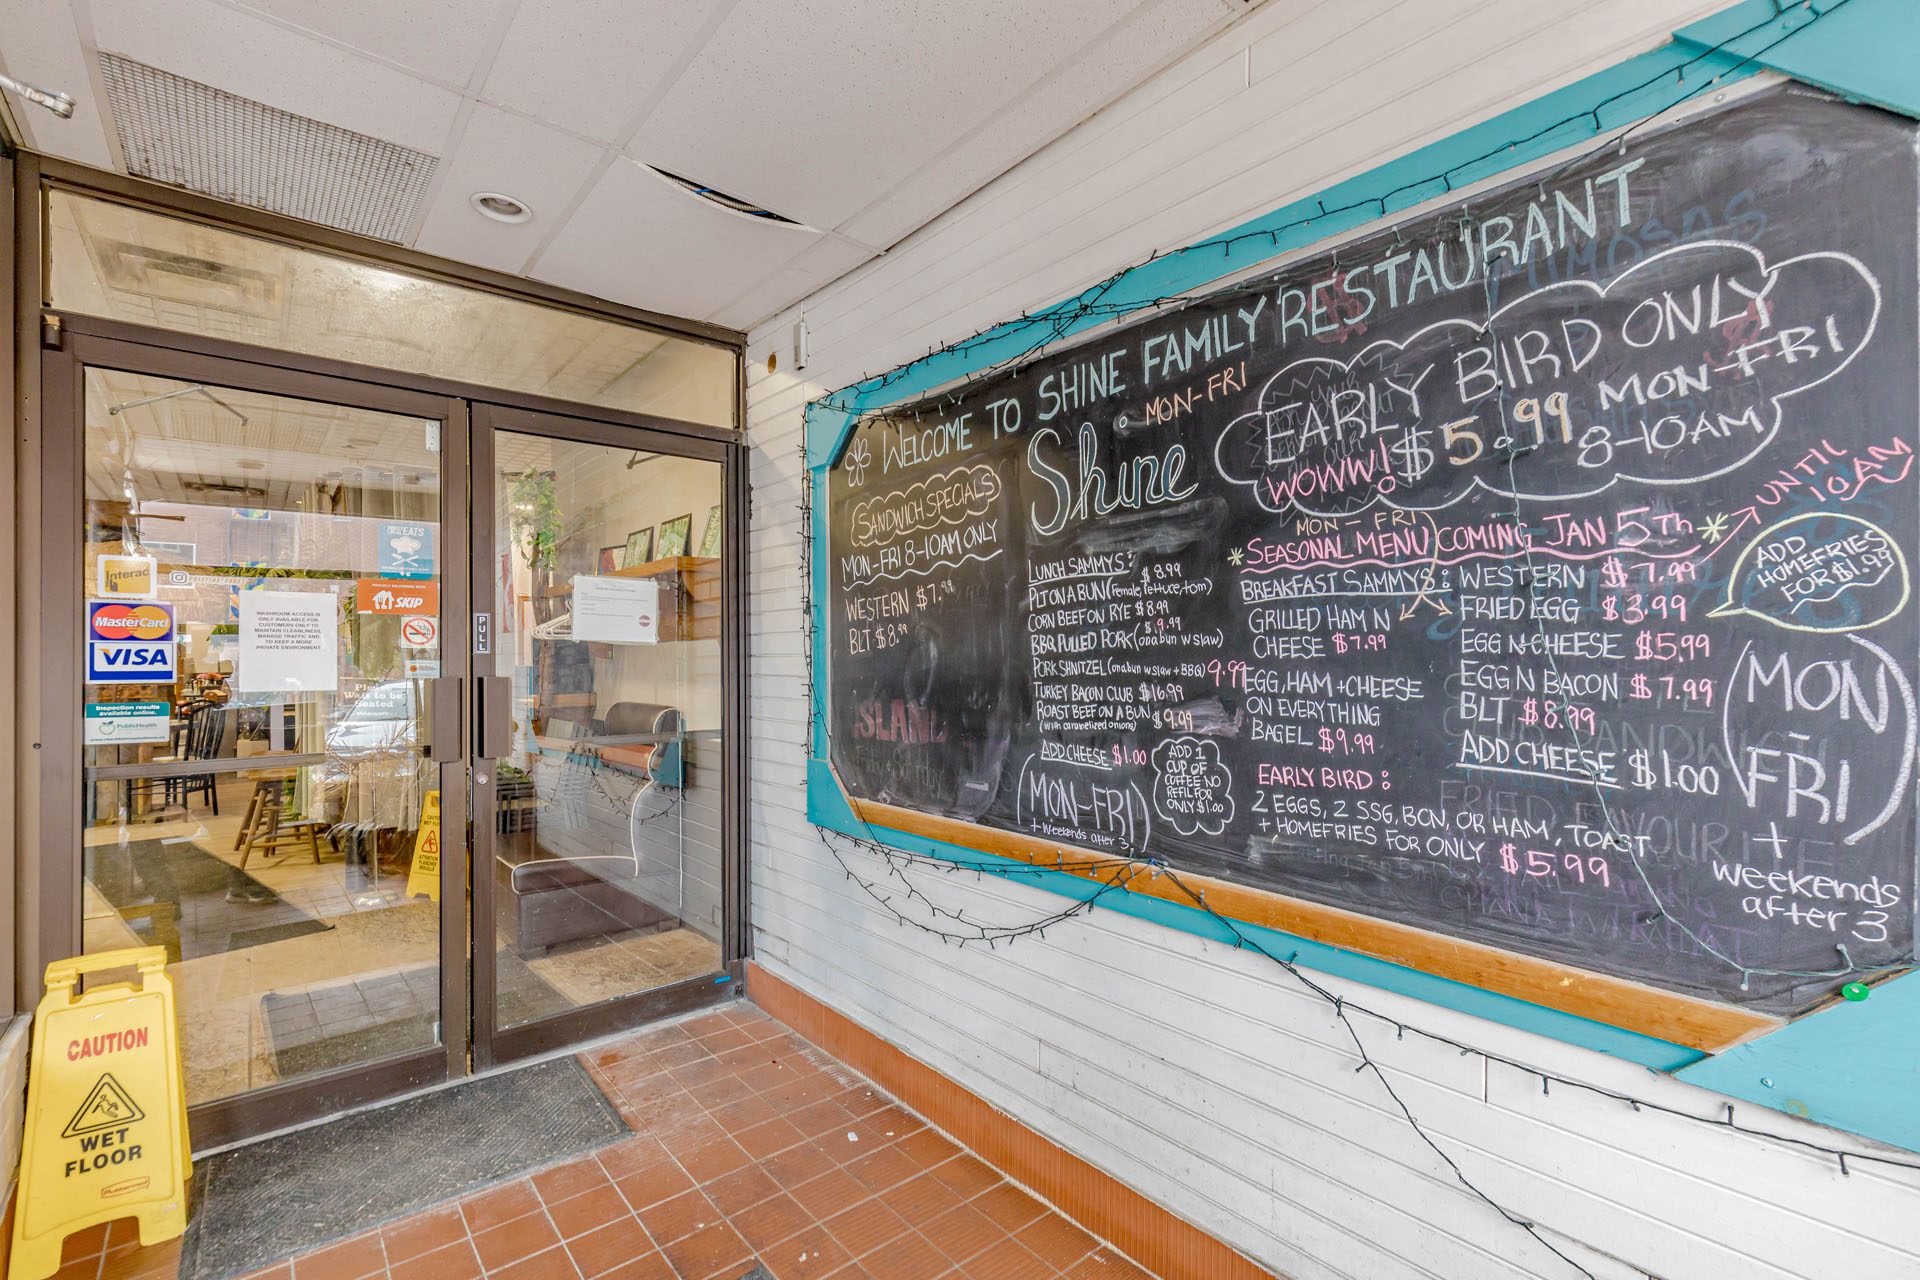 interac
MasterCard
VISA
Inspection results
available online.
PublicHealth
WASHROOM ACCESS IS
ONLY AVAILABLE FOR
CUSTOMERS ONLY TO
MAINTAIN CLEANLINESS,
MANAGE TRAFFIC AND
TO KEEP A MORE
PRIVATE ENVIRONMENT
EATS
SKIP
Please
Wait to be
Seated
PULL
CAUTION
WET
FLOOR
Rubbermaid
WELCOME TO SHINE FAMILY RESTAURANT
MIMOSAS
SANDWICH SPECIALS
MON-FRI 8-10AM ONLY
WESTERN $7.99
BLT $8.99
MON-FRI
Shine
LUNCH SAMMYS:
PLT ON A BUN (Pemeal, lettuce, tom) $8.99
CORN BEEF ON RYE $8.99
BBQ PULLED PORK (on a bun w slaw) $9.99
PORK SHNITZEL (on a bun w slaw + BBQ) 9.99
TURKEY BACON CLUB $16.99
ROAST BEEF ON A BUN $9.99
(with caramelized onions)
ADD CHEESE $1.00
(MON-FRI)
+ weekends after 3
ADD 1
CUP OF
COFFEE NO
REFIL FOR
ONLY $1.00
EARLY BIRD ONLY
WOWW! $5.99 MON-FRI
8-10AM
MON-FRI
*SEASONAL MENU COMING JAN 5Th*
UNTIL
10AM
BREAKFAST SAMMYS:
GRILLED HAM N
CHEESE $7.99
EGG, HAM + CHEESE
ON EVERYTHING
BAGEL $9.99
WESTERN $7.99
FRIED EGG $3.99
EGG N CHEESE $5.99
EGG N BACON $7.99
BLT $8.99
ADD CHEESE $1.00
ADD
HOMEFRIES
FOR $1.99
(MON
-
FRI)
+
weekends
after 3
EARLY BIRD:
2 EGGS, 2 SSG, BCN, OR HAM, TOAST
+ HOMEFRIES FOR ONLY $5.99